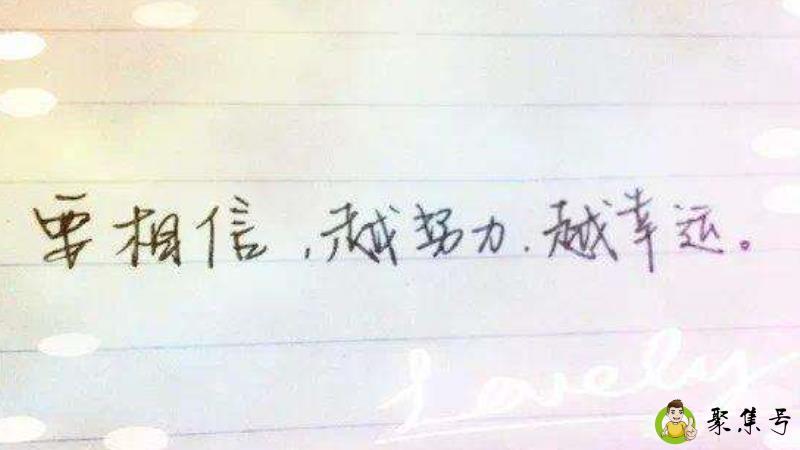 要相信,越努力,越幸运。
Lovely
聚集号